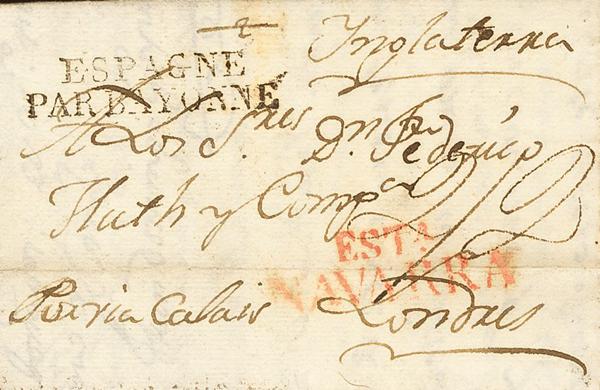 Inglaterra
ESPAGNE
PAR BAYONNE
A Los S.res D.n Federico
Huth y Comp.a
ESTA
NAVARRA
Por via Calais Londres